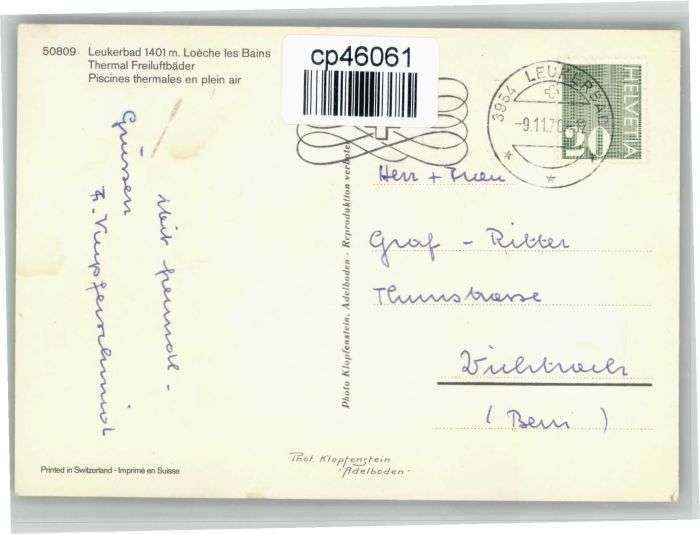 50809 Leukerbad 1401 m. Loèche les Bains
Thermal Freiluftbäder
Piscines thermales en plein air
cp46061
3954 LEUKERBAD
-9.11.70-12
HELVETIA
20
Mit freundl-
Grüssen
Photo Klopfenstein, Adelboden - Reproduktion verboten
Herr + Frau
Graf - Ritter
Thunstrasse
(Bern)
Phot. Klopfenstein
-Adelboden-
Printed in Switzerland - Imprimé en Suisse